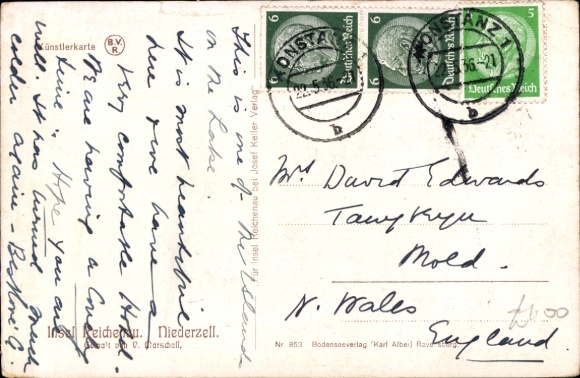 Künstlerkarte
B.V.
R.
This is one of the Islands
on the Lake.
It is most beautiful
here & we have a
very comfortable Hotel.
We are having a lovely
time. Hope you are
well. It has turned much
colder again - Best love G
Insel Reichenau. Niederzell.
Gemalt von V. Marschall.
für Insel Reichenau bei Josef Keller Verlag
6
Deutsches Reich
6
Deutsches Reich
5
Deutsches Reich
KONSTANZ
22.5.36
b
KONSTANZ 1
36-21
b
Mrs David Edwards
Mold.
N. Wales
England
Nr 853 Bodenseeverlag (Karl Alber) Ravensburg.